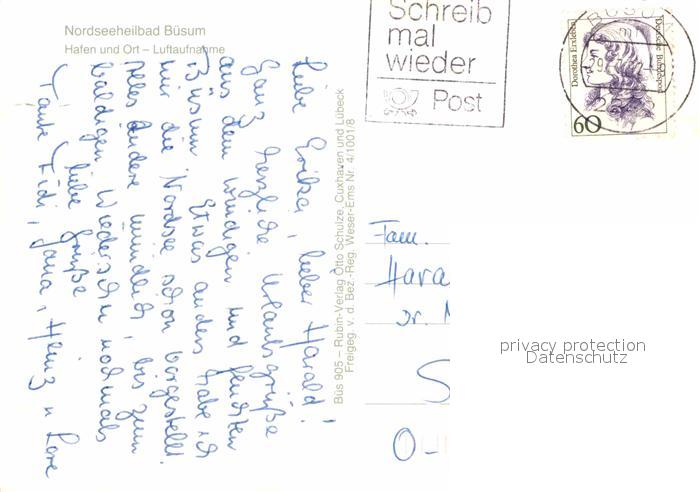 Nordseeheilbad Büsum
Hafen und Ort – Luftaufnahme
Liebe Erika, lieber Harald!
Ganz herzliche Urlaubsgrüße
aus dem windigen und feuchten
Büsum. Etwas anders habe ich
mir die Nordsee schon vorgestellt.
Alles andere mündlich, bis zum
baldigen Wiedersehn nochmals
liebe Grüße
Tante Fidi, Jana, Heinz u Lore
Büs 905 – Rubin-Verlag Otto Schulze, Cuxhaven und Lübeck
Freigeg. v. d. Bez.-Reg. Weser-Ems Nr. 4/1001/8
Schreib
mal
wieder
Post
BÜSUM
Dorothea Erxleben
Deutsche Bundespost
60
Fam.
Hara
Dr.
S
O-
privacy protection
Datenschutz